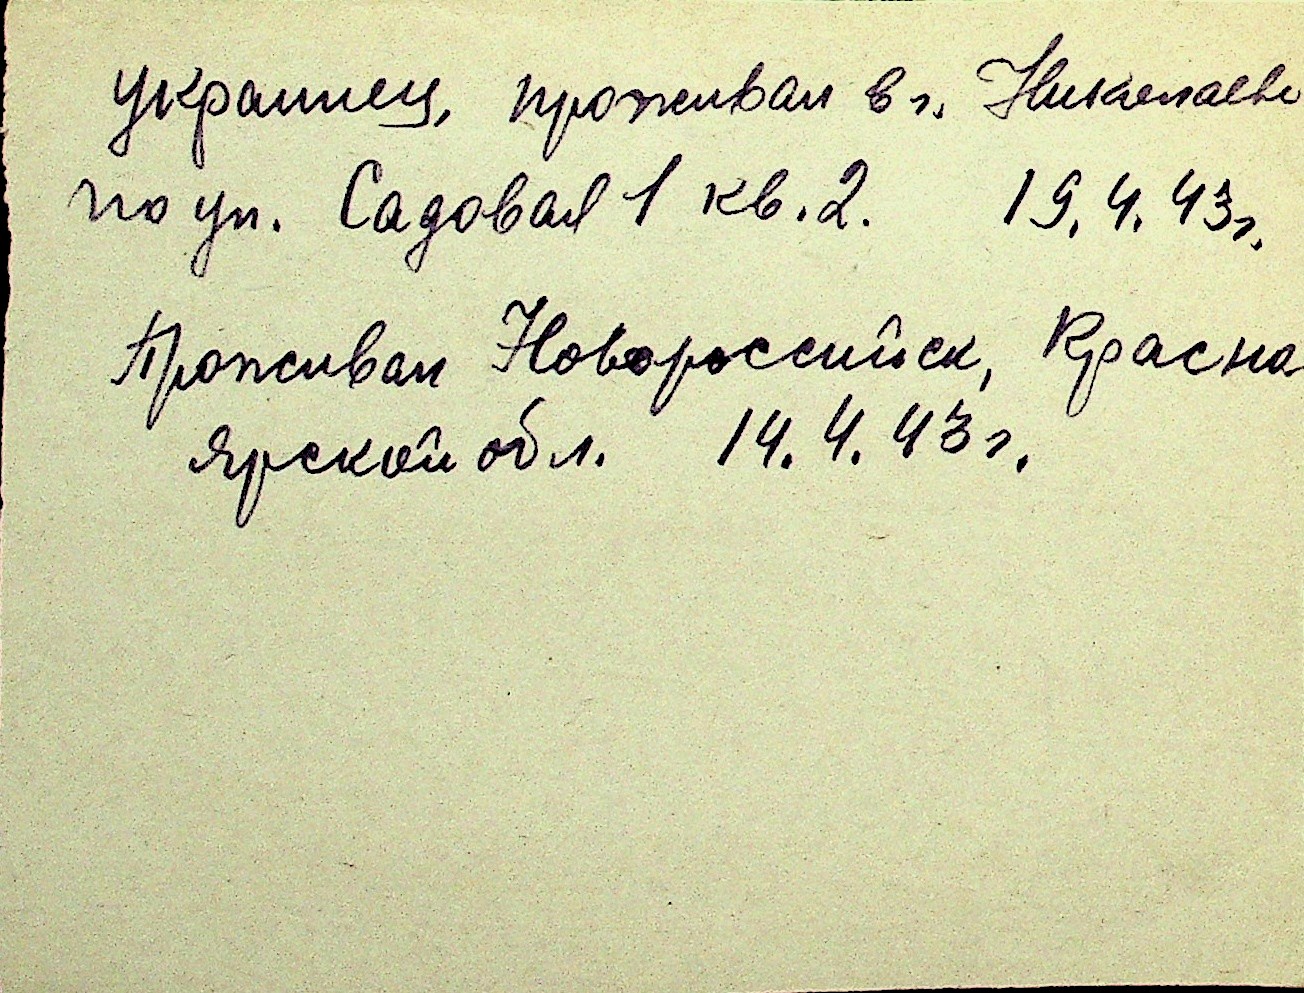 украинец, проживал в г. Николаеве
по ул. Садовая 1 кв. 2. 19.4.43г.
Проживал Новороссийск, Красно
ярской обл. 14.4.43г.